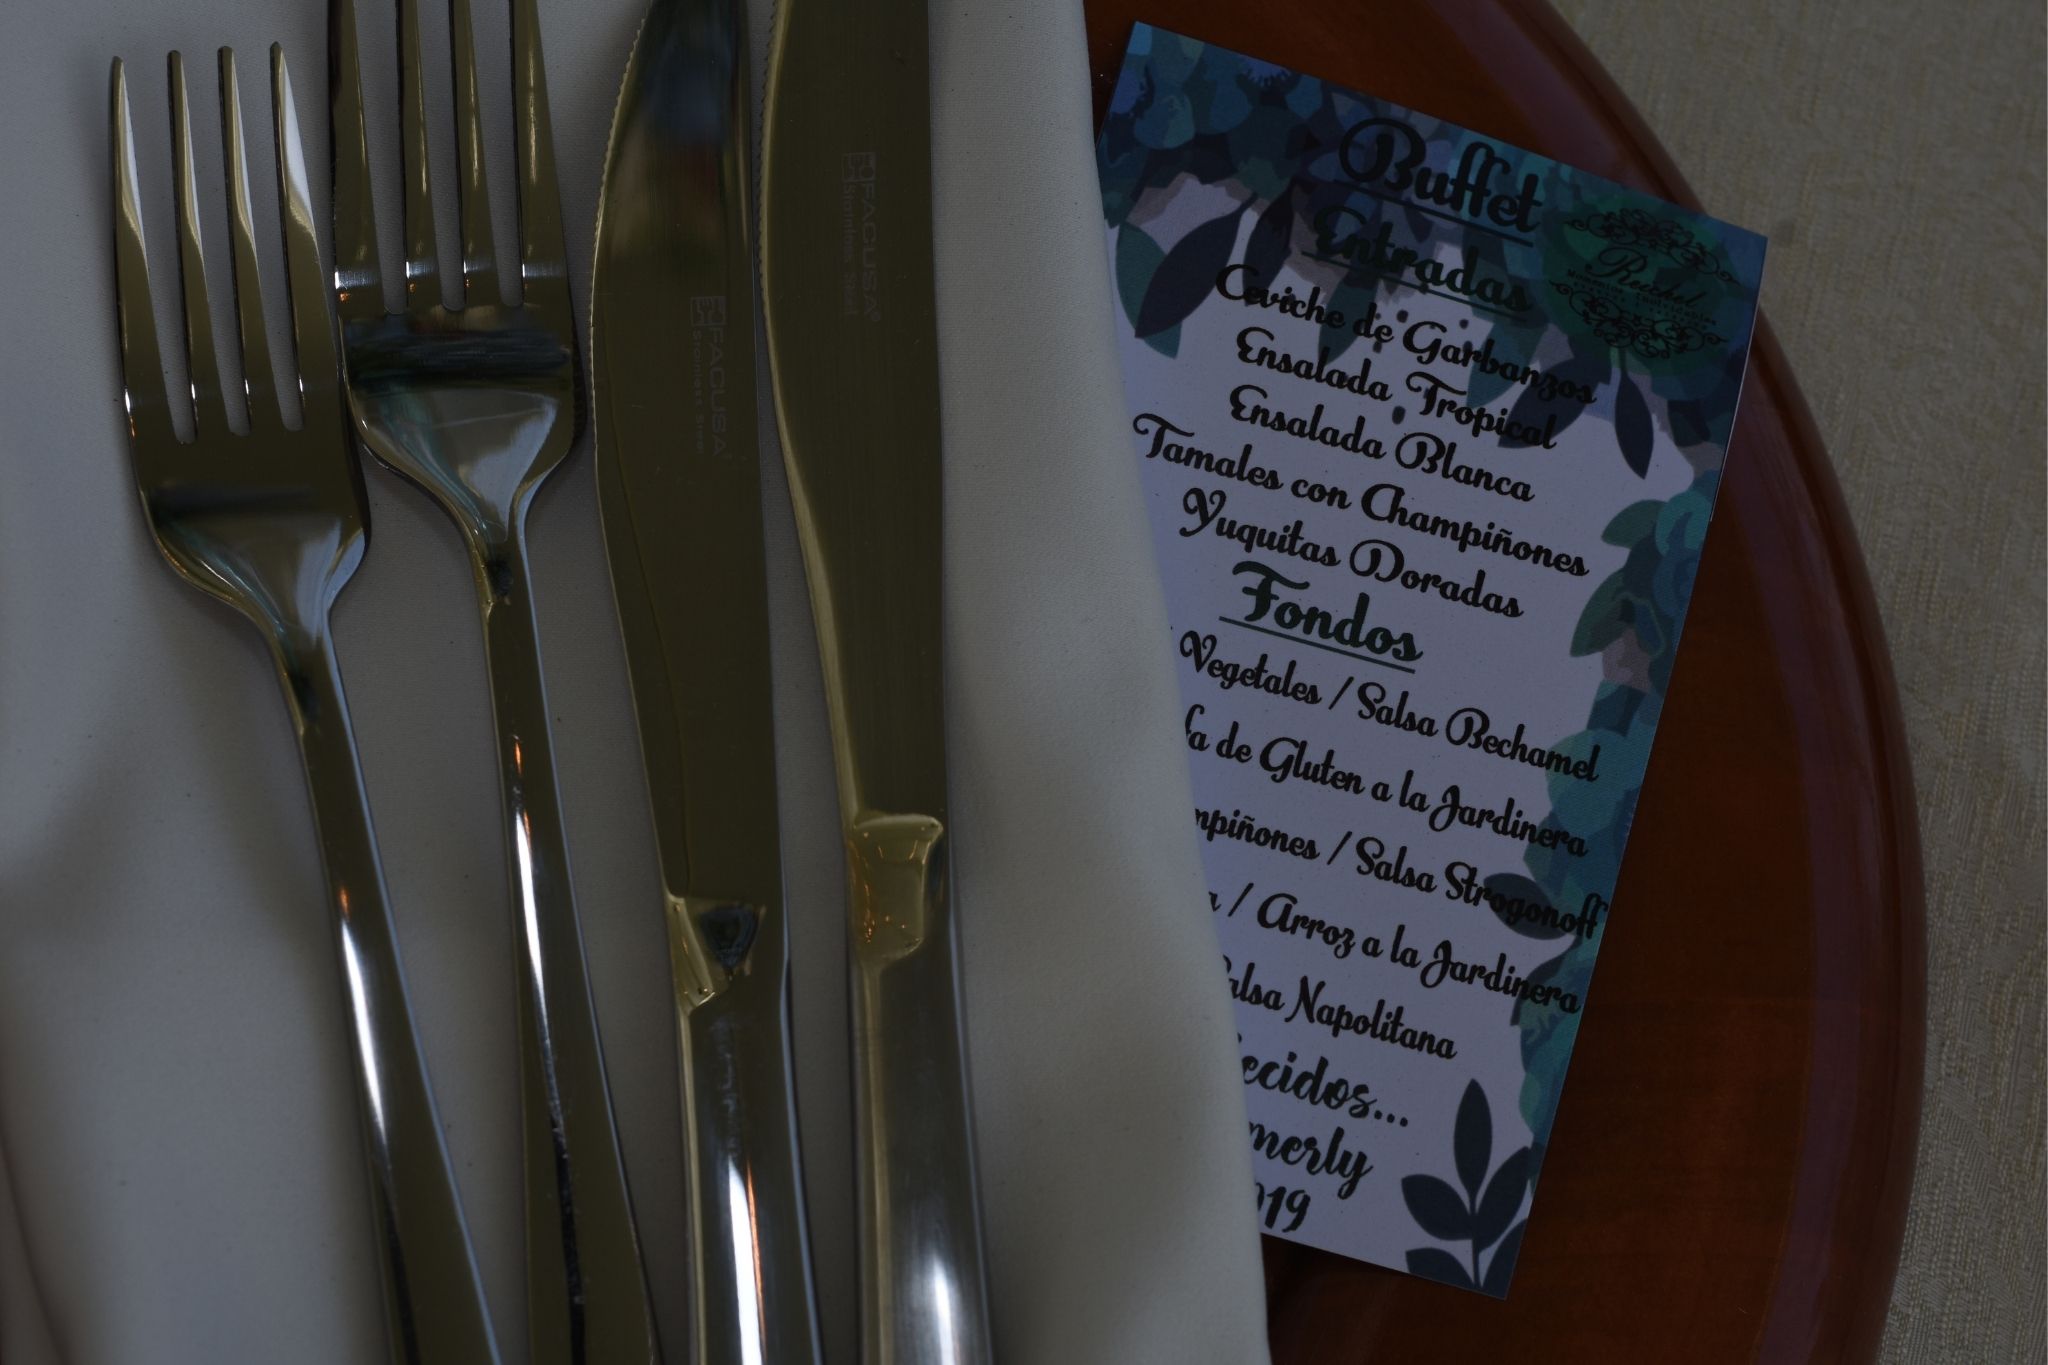 FACUSA®
Stainless Steel
FACUSA®
Stainless Steel
Buffet
Entradas
Ceviche de Garbanzos
Ensalada Tropical
Ensalada Blanca
Tamales con Champiñones
Yuquitas Doradas
Fondos
Vegetales / Salsa Bechamel
de Gluten a la Jardinera
mpiñones / Salsa Strogonoff
a / Arroz a la Jardinera
alsa Napolitana
ecidos...
merly
019